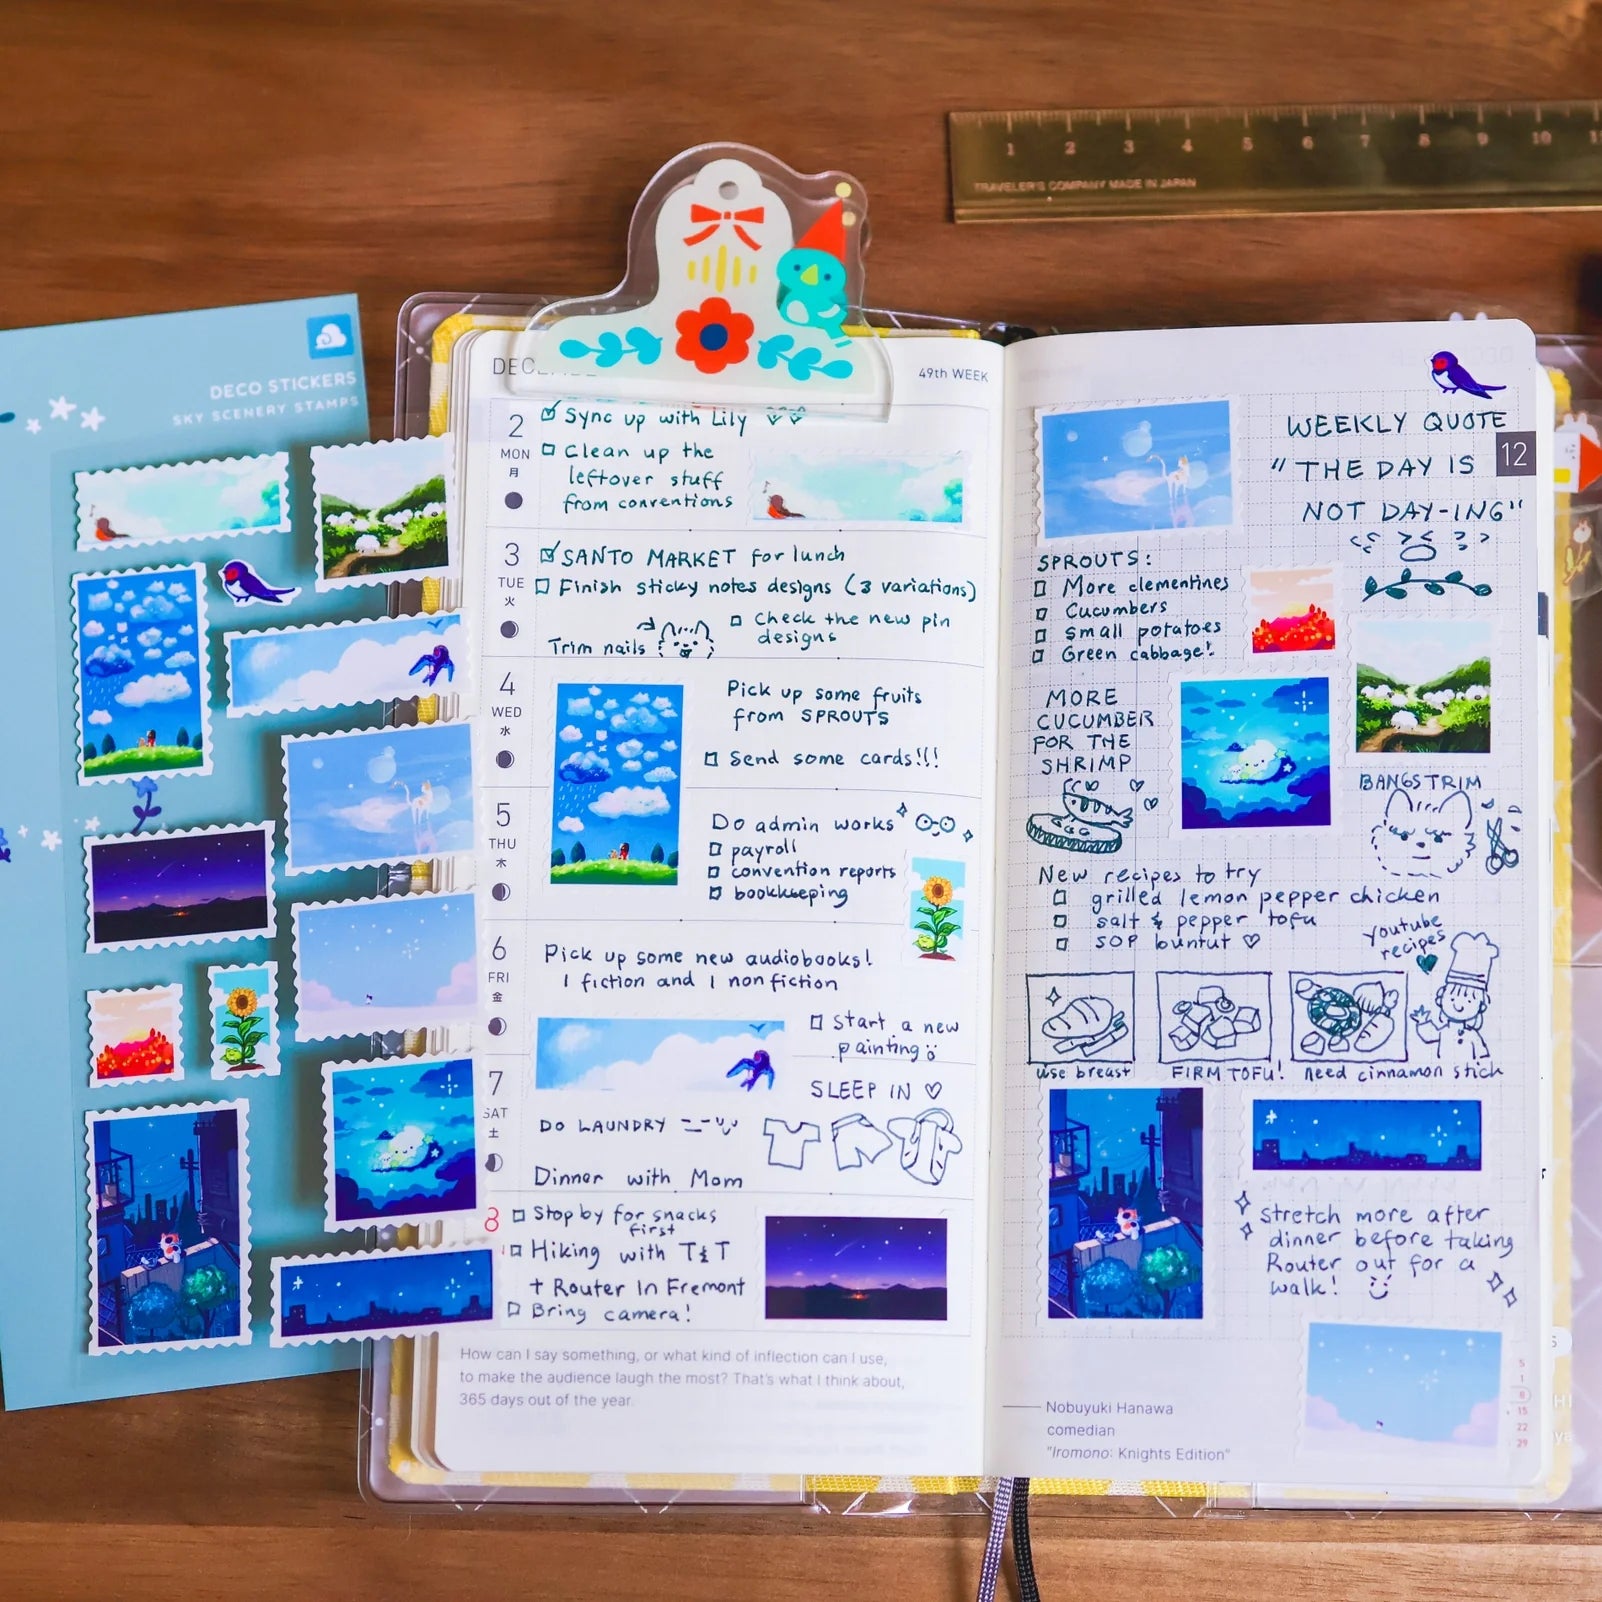 DECO STICKERS
SKY SCENERY STAMPS
TRAVELER'S COMPANY MADE IN JAPAN
1 2 3 4 5 6 7 8 9 10
49th WEEK
2
MON
月
Sync up with Lily
Clean up the
leftover stuff
from conventions
3
TUE
火
SANTO MARKET for lunch
Finish sticky notes designs (3 variations)
Trim nails
Check the new pin
designs
4
WED
水
Pick up some fruits
from SPROUTS
Send some cards!!!
5
THU
木
Do admin works
payroll
convention reports
bookkeeping
6
FRI
金
Pick up some new audiobooks!
1 fiction and 1 nonfiction
Start a new
painting
7
SAT
土
SLEEP IN ♡
DO LAUNDRY
Dinner with Mom
8
Stop by for snacks
first
Hiking with T&T
+ Router In Fremont
Bring camera!
How can I say something, or what kind of inflection can I use,
to make the audience laugh the most? That's what I think about,
365 days out of the year.
WEEKLY QUOTE
12
"THE DAY IS
NOT DAY-ING"
SPROUTS:
More clementines
Cucumbers
Small potatoes
Green cabbage!
MORE
CUCUMBER
FOR THE
SHRIMP
BANGS TRIM
New recipes to try
grilled lemon pepper chicken
salt & pepper tofu
SOP buntut ♡
youtube
recipes
use breast
FIRM TOFU!
need cinnamon stick
stretch more after
dinner before taking
Router out for a
walk!
Nobuyuki Hanawa
comedian
"Iromono: Knights Edition"
5
1
8
15
22
29